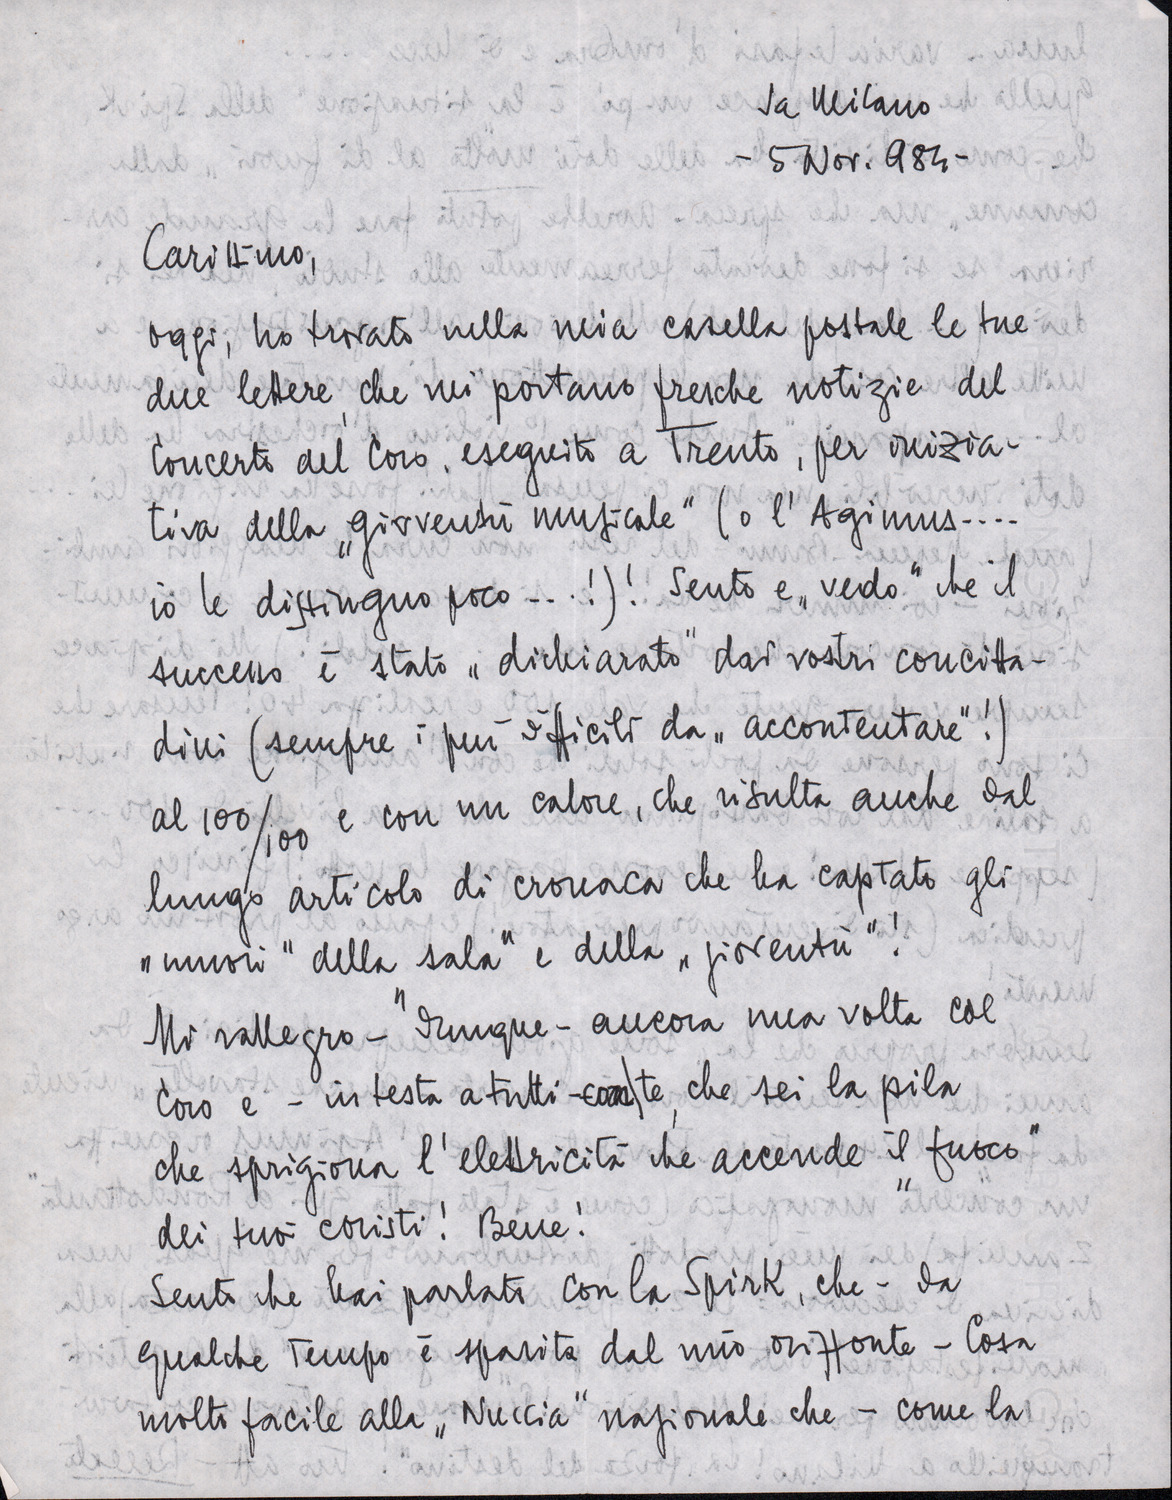 da Milano
- 5 Nov. 984 -
Carissimo,
oggi, ho trovato nella mia casella postale le tue
due lettere, che mi portano fresche notizie del
Concerto del Coro, eseguito a Trento, per inizia-
tiva della „gioventù musicale" (o l'Agimus....
io le distinguo poco ....!)! Sento e „vedo" che il
successo è stato „dichiarato" dai vostri concitta-
dini (sempre i più difficili da „accontentare"!)
al 100/100 e con un calore, che risulta anche dal
lungo articolo di cronaca che ha captato gli
„umori" della sala" e della „gioventù"!
Mi rallegro - dunque - ancora una volta col
Coro e - in testa a tutti - con te, che sei la pila
che sprigiona l'elettricità che accende il „fuoco"
dei tuoi coristi! Bene!
Sento che hai parlato con la Spirk, che - da
qualche tempo è sparita dal mio orizzonte - Cosa
molto facile alla „Nuccia" nazionale che - come la